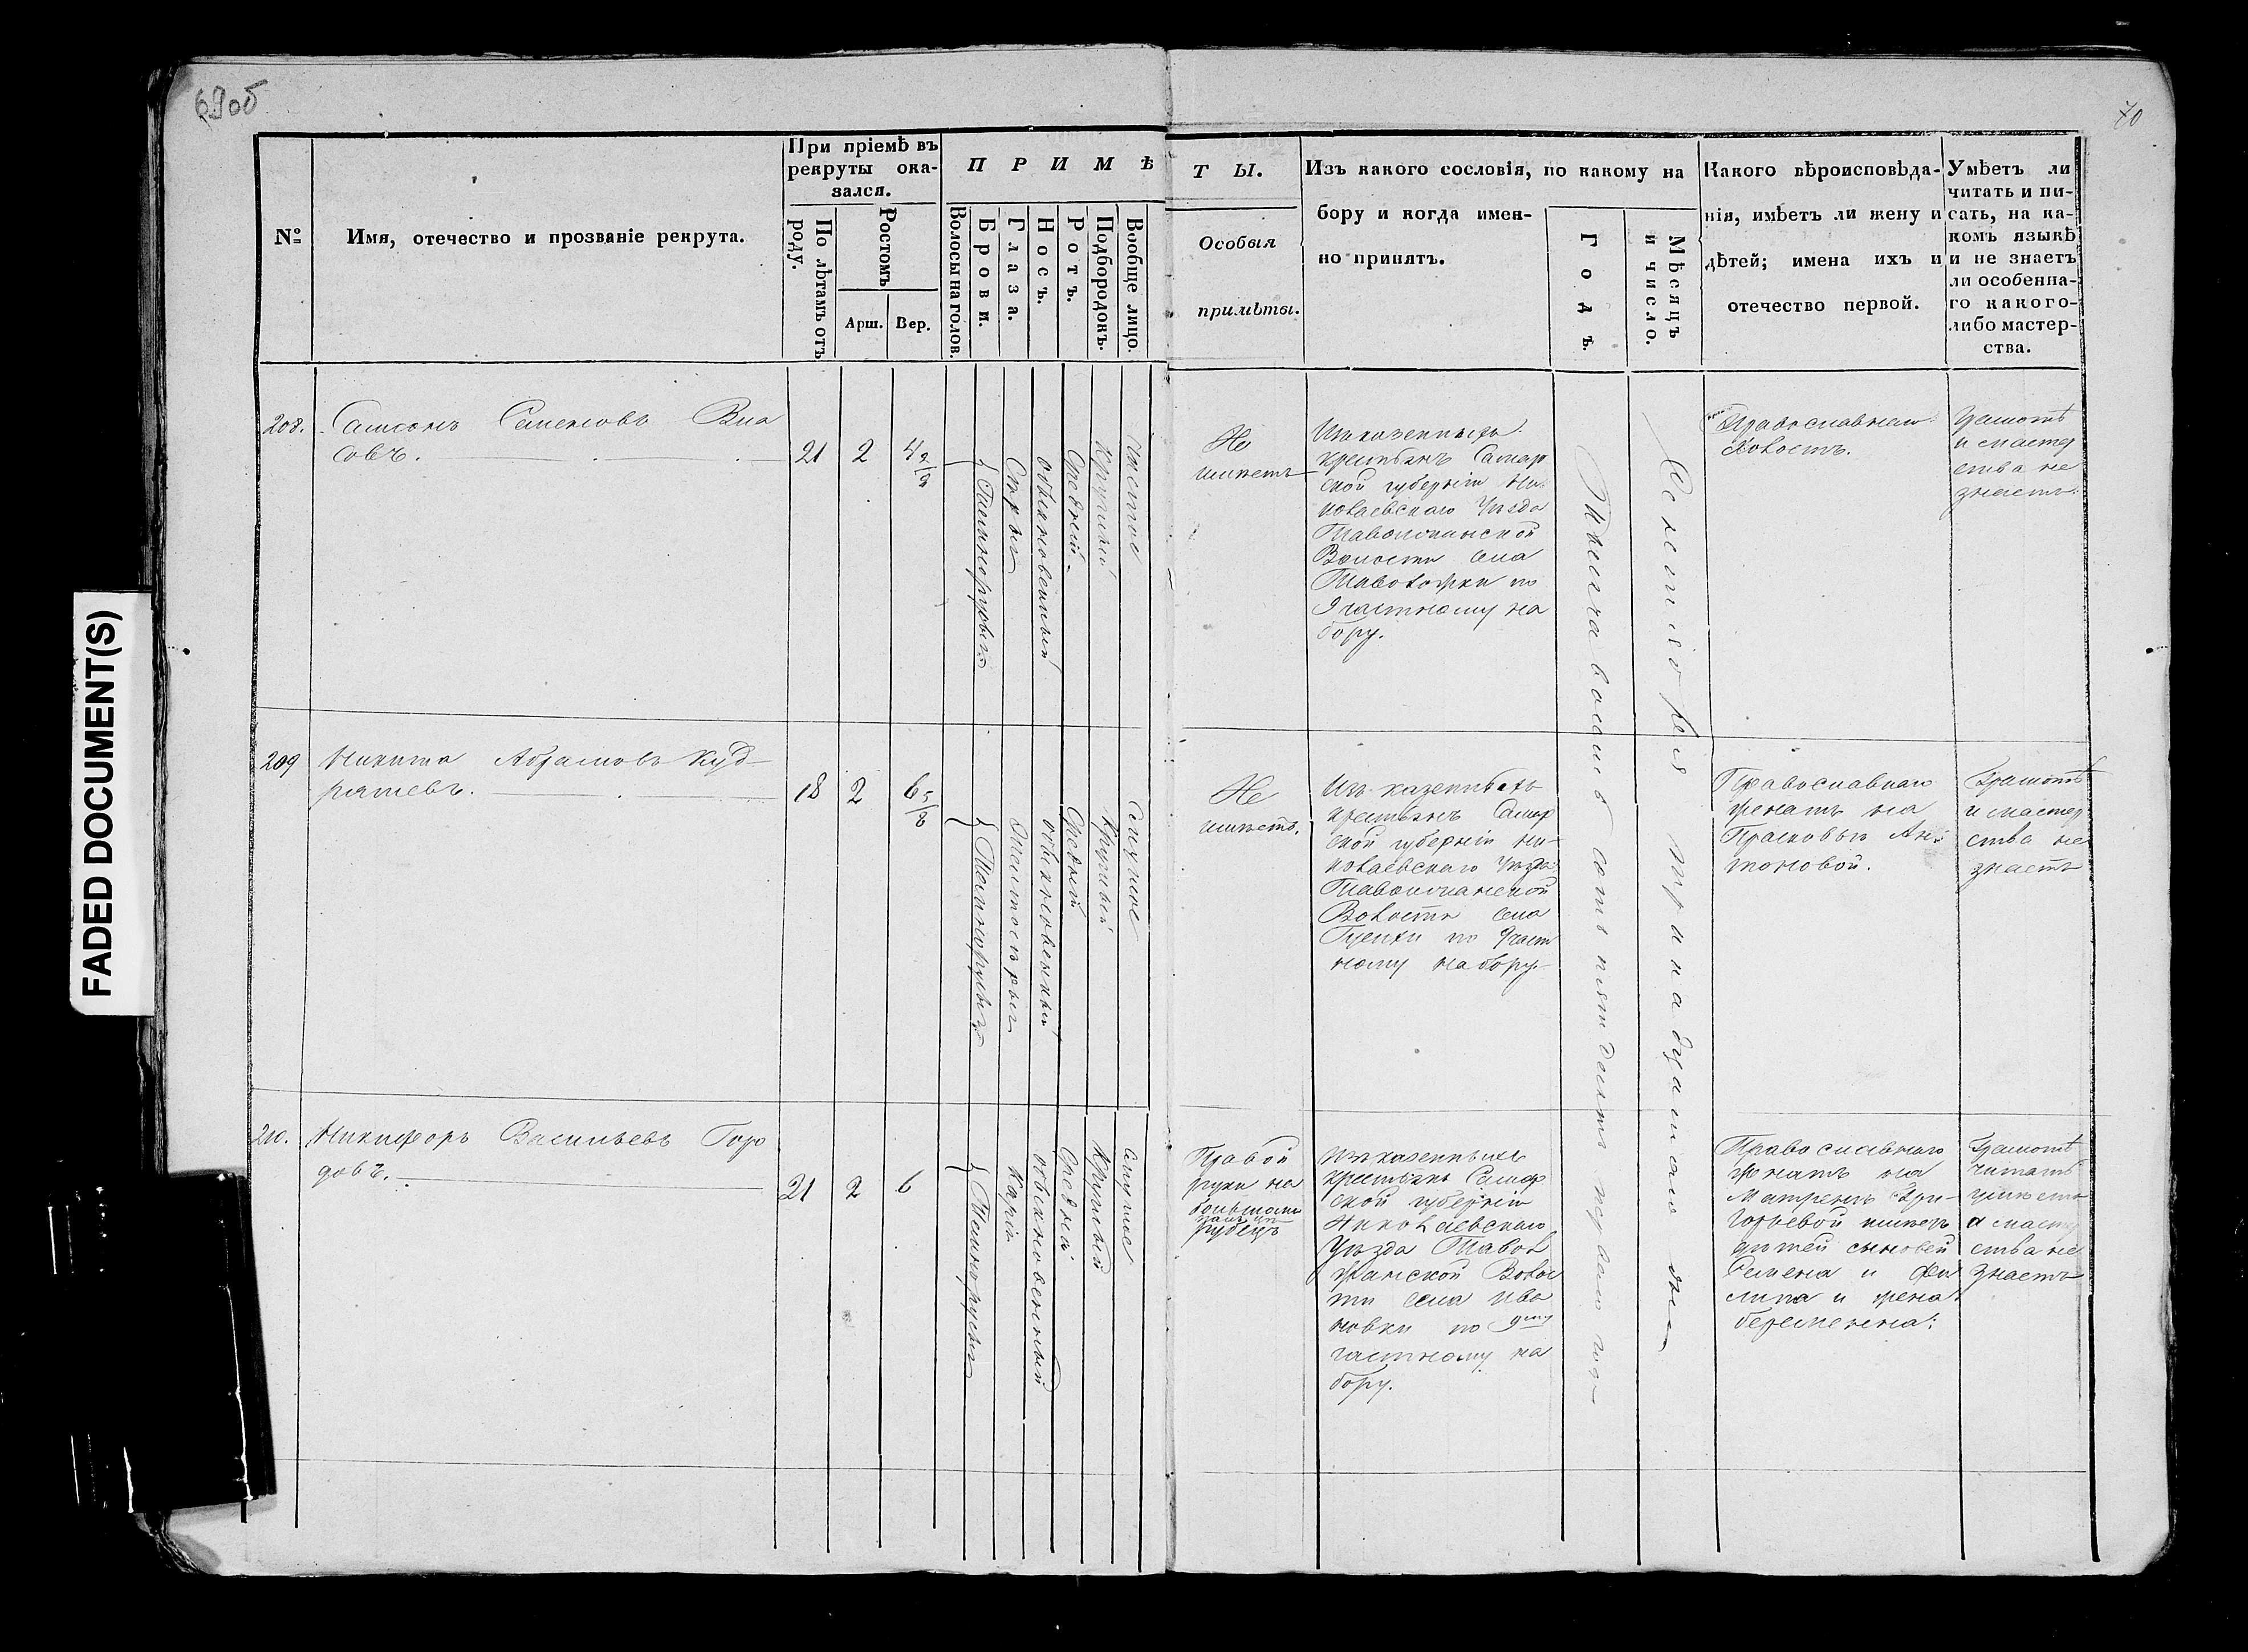 69об
70
FADED DOCUMENT(S)
№
Имя, отечество и прозваніе рекрута.
При пріемѣ въ
рекруты ока-
зался.
По лѣтамъ отъ
роду.
Ростомъ
Арш.
Вер.
ПРИМѢ
Волосы на голов.
Брови.
Глаза.
Носъ.
Ротъ.
Подбородокъ.
Вообще лицо.
ТЫ.
Особыя
примѣты.
Изъ какого сословія, по какому на
бору и когда имен-
но принятъ.
Годъ.
Мѣсяцъ
и число.
Какого вѣроисповѣда-
нія, имѣетъ ли жену и
дѣтей; имена ихъ и
отечество первой.
Умѣетъ ли
читать и пи-
сать, на ка-
комъ языкѣ
и не знаетъ
ли особенна-
го какого-
либо мастер-
ства.
208.
Самсонъ Семеновъ Вла
совъ.
21
2
4 2/8
Темнорусыя
Сѣрыя
обыкновенный
Средній
Круглый
чистое
Не
имѣетъ
Изъ казенныхъ
крестьянъ Самар
ской губерніи Ни
колаевскаго Уѣзда
Таволжанской
Волости села
Таволожки по
9 частному на
бору.
Тысяча восемь сотъ пятьдесятъ перваго года
Сентября тринадцатаго дня
Православнаго
Холостъ.
Грамотѣ
и мастер
ства не
знаетъ.
209
Никита Абрамовъ Куд-
ряшевъ.
18
2
6 5/8
Темнорусыя
Желтосѣрыя
обыкновенный
Средній
Круглый
Смуглое
Не
имѣетъ.
Изъ казенныхъ
крестьянъ Самар
ской губерніи Ни-
колаевскаго Уѣзда
Таволжанской
Волости села
по 9 част
ному набору.
Православнаго
женатъ на
Прасковьѣ Ан-
тоновой.
Грамотѣ
и мастер
ства не
знаетъ
210.
Никифоръ Васильевъ Горо
довъ.
21
2
6
Темнорусыя
Каріе
обыкновенный
Средній
Круглый
смуглое
Правой
руки на
большомъ
пальцѣ
рубецъ
Изъ казенныхъ
крестьянъ Самар
ской губерніи
Николаевскаго
Уѣзда Тавол
жанской Волос
ти села Ива
новки по 9му
частному на
бору.
Православнаго
женатъ на
Матренѣ Гри-
горьевой имѣетъ
дѣтей сыновей
Семена и Фи
липа и жена
беременна.
Грамотѣ
читать
умѣетъ
а мастер
ства не
знаетъ